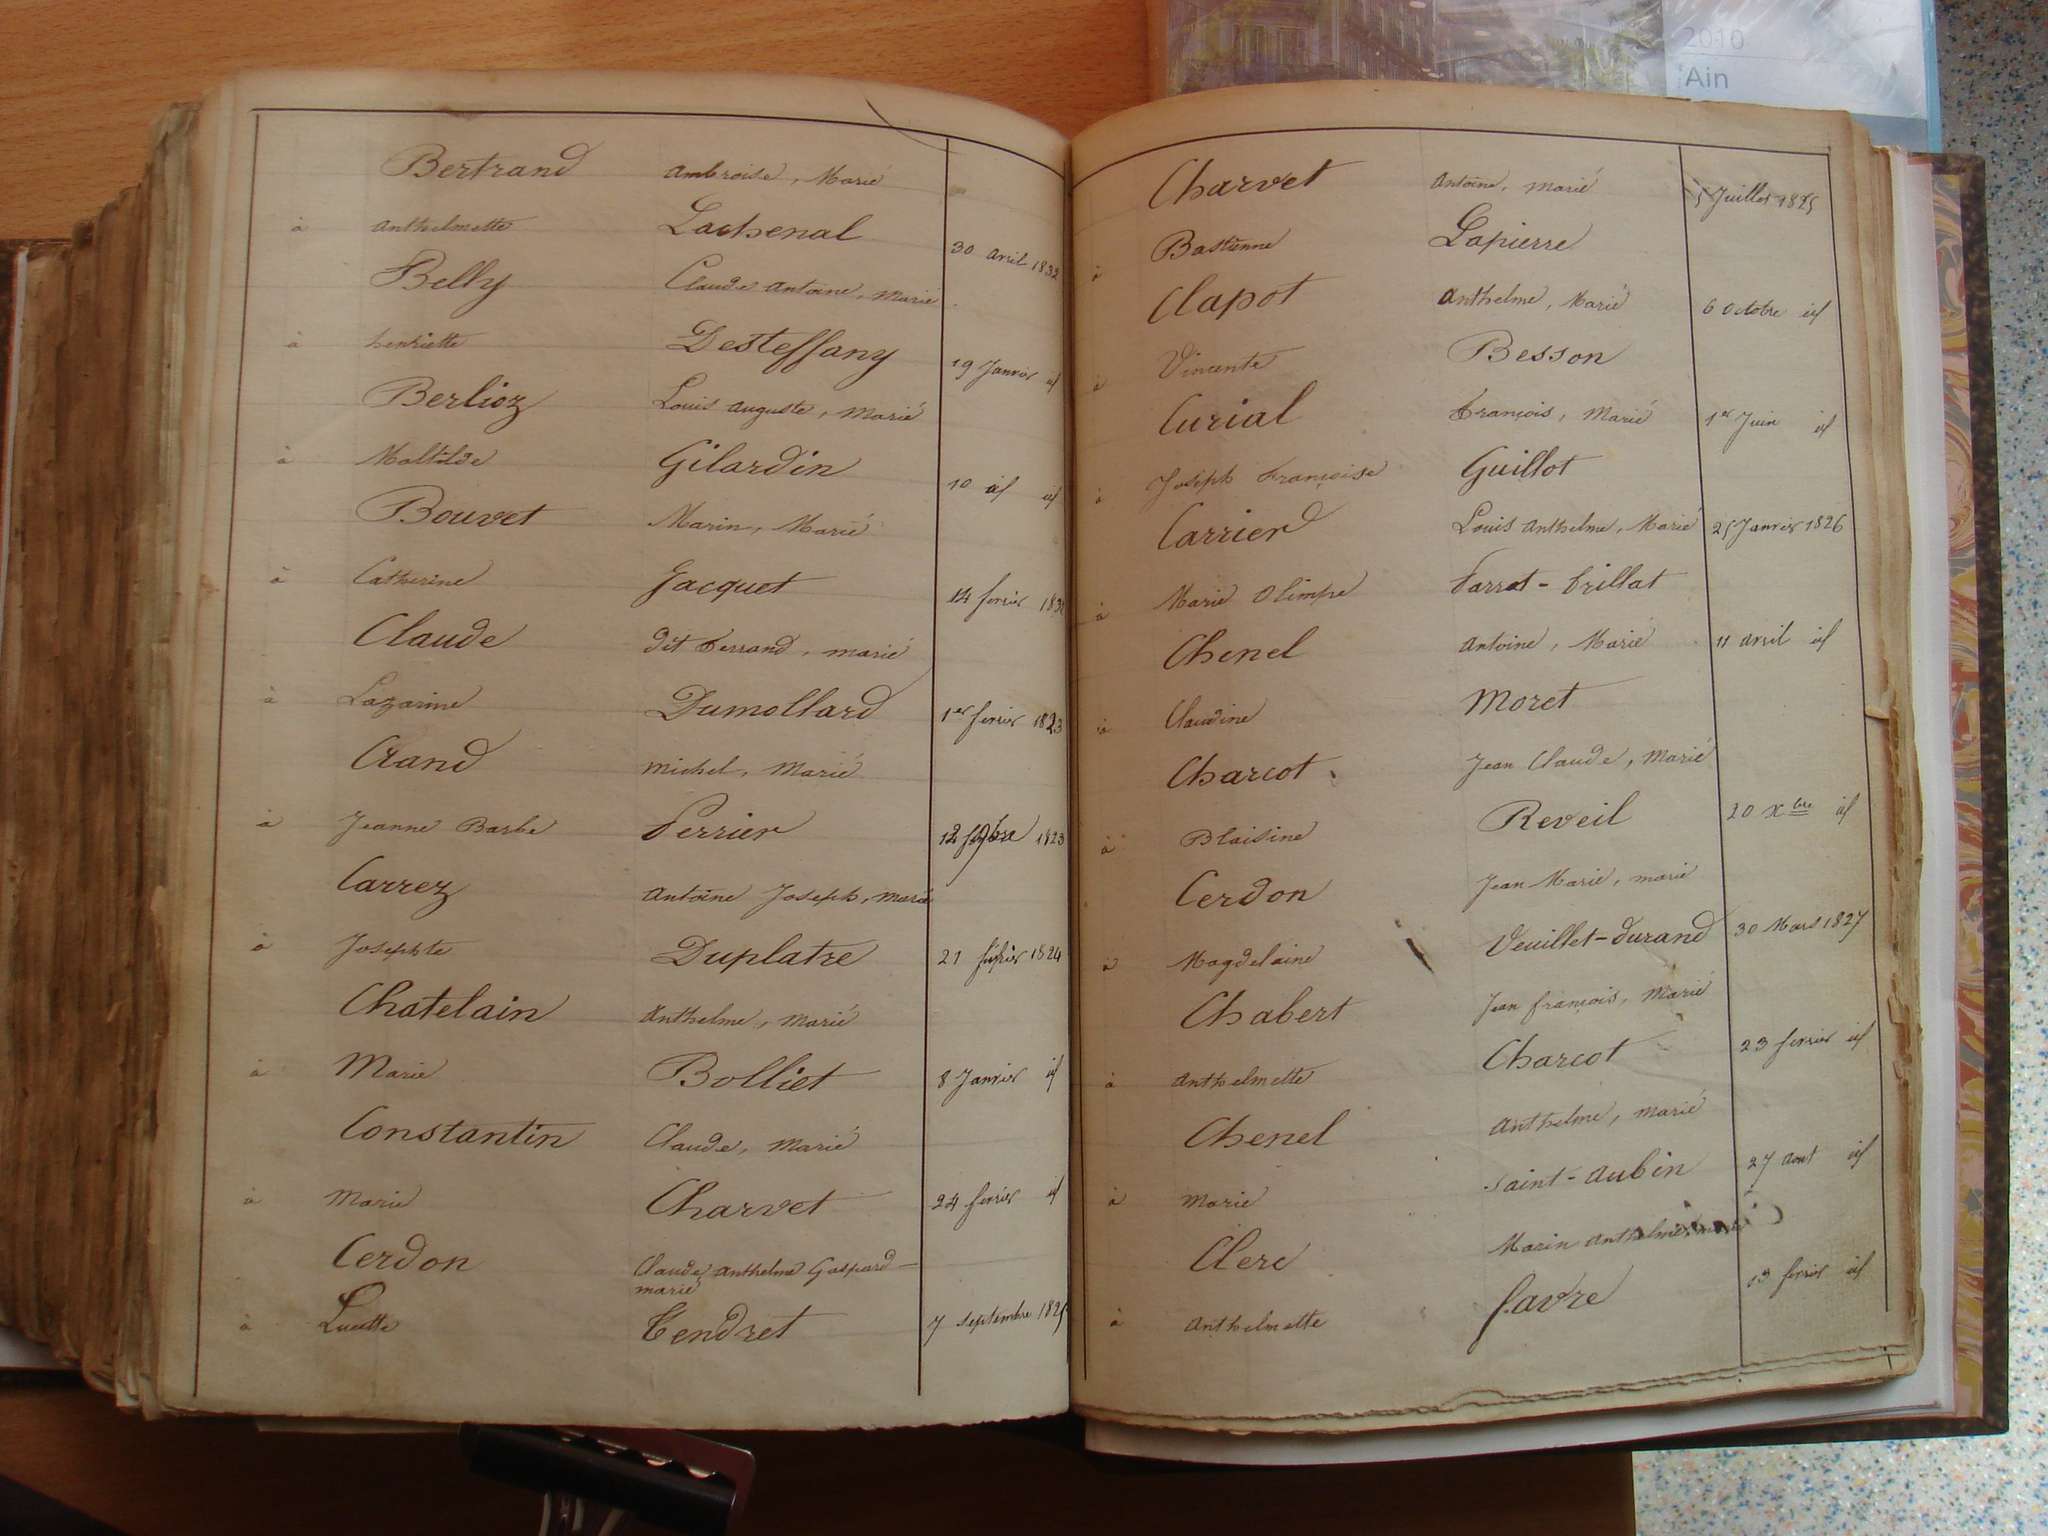 2010
Ain
Bertrand Ambroise, Marié
à Anthelmette Lachenal 30 avril 1832
Belly Claude Antoine, Marié
à henriette Desteffany 19 Janvier id
Berlioz Louis Auguste, Marié
à Maltilde Gilardin 10 id id
Bouvet Marin, Marié
à Catherine Jacquet 14 fevrier
Claude dit Ferrand, marié
à Lazarine Dumollard 1er fevrier 1823
Crand Michel, Marié
à Jeanne Barbe Perrier 1823
Carrez Antoine Joseph, Marié
à Josephte Duplatre 21 février 1824
Chatelain Anthelme, Marié
à Marie Bolliet 8 Janvier id
Constantin Claude, Marié
à Marie Charvet 24 fevrier id
Cerdon Claude Anthelme Gaspard -
marié
à Lucette Tendret 7 septembre 1825
Charvet Antoine, Marié 5 Juillet 1825
à Bastienne Lapierre
Clapot Anthelme, Marié 6 Octobre id
à Vincente Besson
Curial François, Marié 1er Juin id
à Joseph Françoise Guillot
Carrier Louis Anthelme, Marié 25 Janvier 1826
à Marie Olimpe Parrat-brillat
Chenel Antoine, Marié 11 avril id
à Claudine Moret
Charcot Jean Claude, Marié
à Blaisine Reveil 20 Xbre id
Cerdon Jean Marie, marié
à Magdelaine Veuillet-durand 30 Mars 1827
Chabert Jean françois, Marié
à Anthelmette Charcot 23 fevrier id
Chenel Anthelme, marié
à Marie Saint-Aubin 27 Aout id
Clerc Marin Anthelme
à Anthelmette favre 13 fevrier id